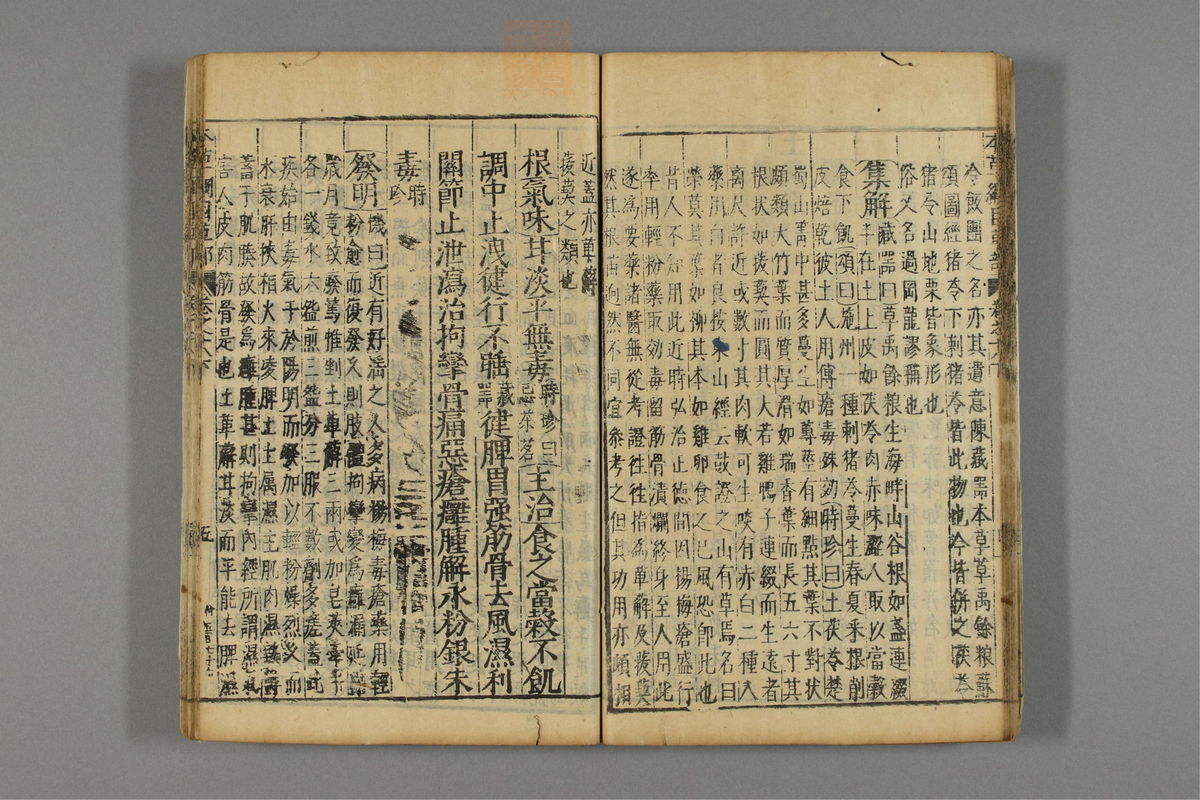 冷飯團之名亦其遺意陳藏器本草草禹餘粮蘇
頌圖經猪苓下刺猪苓皆此物也今皆併之茯苓
猪苓山地栗皆象形也
俗又名過岡龍謬稱也
集解藏器曰草禹餘粮生海畔山谷根如盞連綴
半在土上皮如茯苓肉赤味澀人取以當穀
食下飢頌曰施州一種刺猪苓蔓生春夏采根削
皮焙乾彼土人用傅瘡毒殊効時珍曰土茯苓楚
蜀山箐中甚多蔓生如蓴莖有細點其葉不對狀
頗類大竹葉而質厚滑如瑞香葉而長五六寸其
根狀如菝葜而圓其大若雞鴨子連綴而生遠者
离尺許近或數寸其肉軟可生啖有赤白二種入
藥用白者良按東山經云鼓證之山有草焉名曰
榮莫其葉如柳其本如雞卵食之已風恐即此也
昔人不知用此近時弘治正德間因楊梅瘡盛行
率用輕粉藥取効毒留筋骨潰爛終身至人用此
遂為要藥諸醫無從考證往往指為萆薢及菝葜
然其根苗迥然不同宜叅考之但其功用亦頗相
近蓋亦萆薢
菝葜之類也
根氣味甘淡平無毒時珍曰忌茶茗主治食之當穀不飢
調中止洩健行不睡藏器健脾胃强筋骨去風濕利
關節止泄瀉治拘攣骨痛惡瘡癰腫解汞粉銀朱
毒時珍
發明機曰近有好淫之人多病楊梅毒瘡藥用輕
粉愈而復發久則肢體拘攣變為癰漏延綿
歲月竟致廢篤惟剉土萆薢三兩或加皂莢牽牛
各一錢水六盌煎三盌分三服不數劑多瘥蓋此
疾始由毒氣干於陽明而發加以輕粉燥烈久而
水衰肝挾相火來凌脾土土屬濕主肌肉濕熱鬱
蓄于肌腠故發為癰腫甚則拘攣內經所謂濕氣
害人皮肉筋骨是也土萆薢甘淡而平能去脾濕